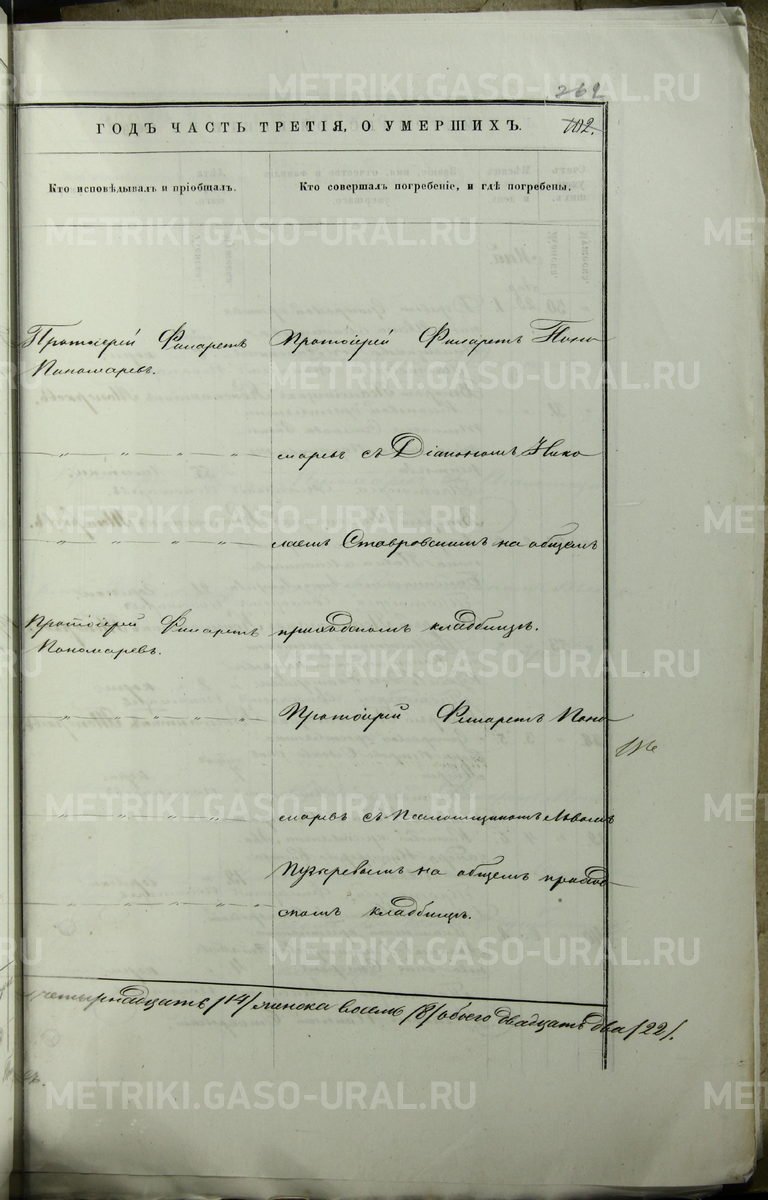 262
ГОДЪ ЧАСТЬ ТРЕТІЯ, О УМЕРШИХЪ. 102.
Кто исповѣдывалъ и пріобщалъ.
Кто совершалъ погребеніе, и гдѣ погребены.
Протоіерей Филаретъ
Пономаревъ.
" " " "
" " " " "
Протоіерей Филаретъ
Пономаревъ.
" " " " "
" " " " "
" " " " "
Протоіерей Филаретъ Поно
маревъ съ Діакономъ Нико
лаемъ Ставровскимъ на общемъ
приходскомъ кладбищѣ.
Протоіерей Филаретъ Поно
маревъ съ Псаломщикомъ Львомъ
Пузыревымъ на общемъ приход
скомъ кладбищѣ.
четырнадцать /14/ женска восемь /8/ обоего двадцать два /22/.
METRIKI.GASO-URAL.RU